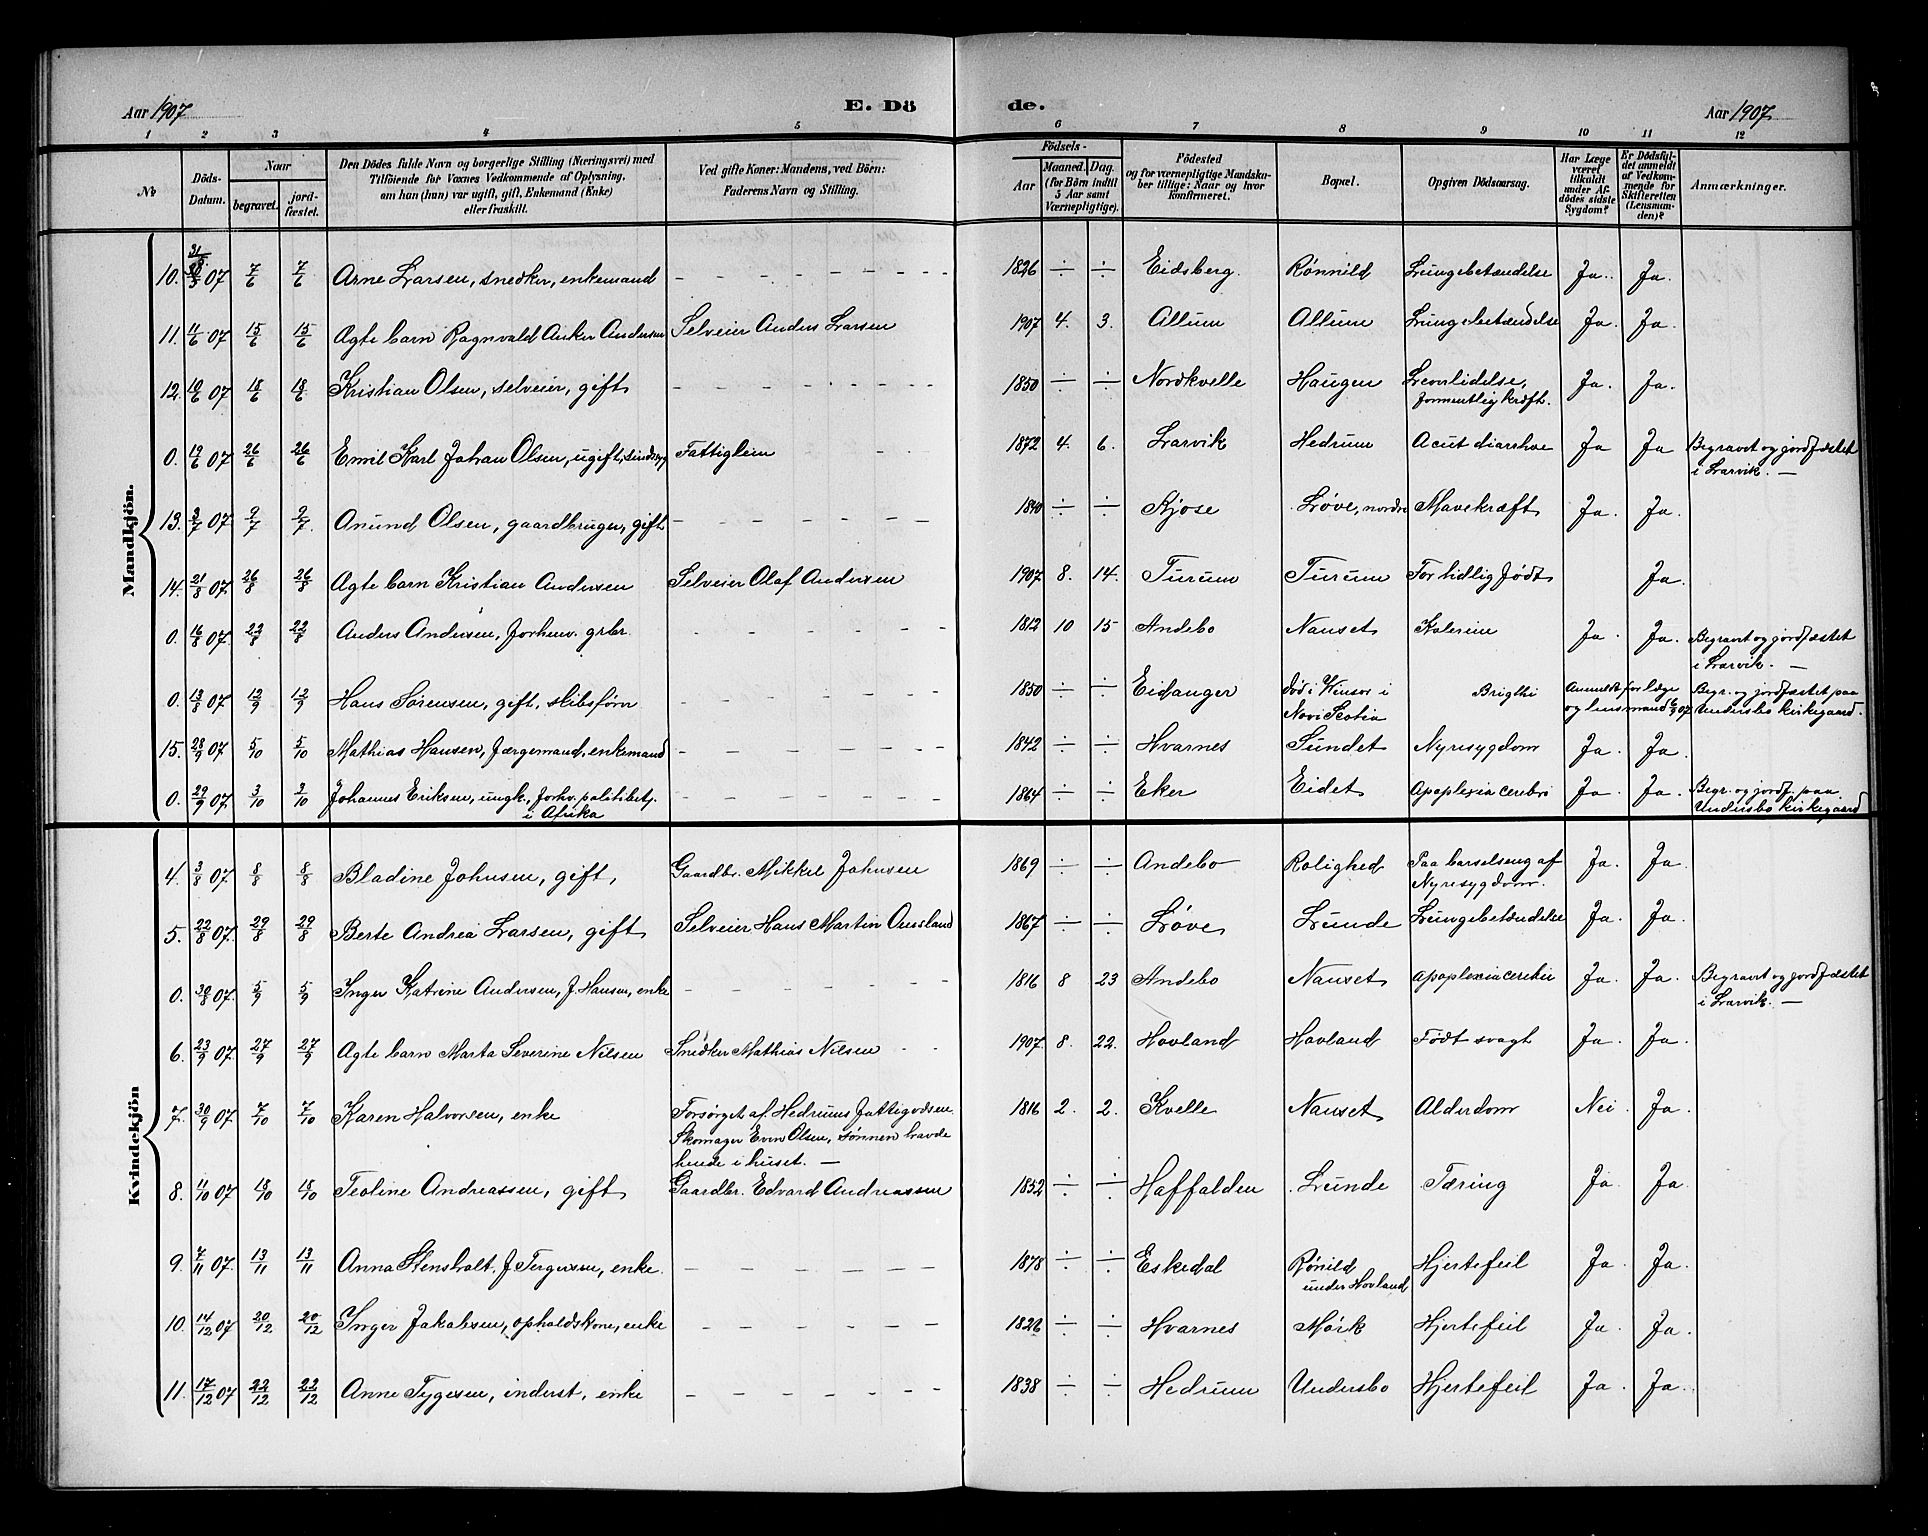 Aar 1907 E. Dö de. Aar 1907
1 2 3 4 5 6 7 8 9 10 11 12
No
Döds-Datum.
Naar
begravet.
jord-fæstet.
Den Dödes fulde Navn og borgerlige Stilling (Næringsvei) med
Tilföiende for Voxnes Vedkommende af Oplysning,
om han (hun) var ugift, gift, Enkemand (Enke)
eller fraskilt.
Ved gifte Koner: Mandens, ved Börn:
Faderens Navn og Stilling.
Födsels-
Aar
Maaned. Dag.
(for Börn indtil
5 Aar samt
Værnepligtige).
Födested
og for værnepligtige Mandska-
ber tillige: Naar og hvor
konfirmeret.
Bopæl.
Opgiven Dödsaarsag.
Har Læge
været
tilkaldt
under Af-
dödes sidste
Sygdom?
Er Dödsfal-
det anmeldt
af Vedkom-
mende for
Skifteretten
(Lensman-
den)?
Anmærkninger.
Mandkjön.
10. 31/5 07 7/6 7/6 Arne Larsen, snedker, enkemand – – – 1826 ÷ ÷ Eidsberg. Rønnild Lungebetændelse Ja. Ja.
11. 4/6 07 15/6 15/6 Ægte barn Ragnvald Anker Andersen Selveier Anders Larsen 1907 4. 3. Allum Allum Lungebetændelse Ja. Ja.
12. 10/6 07 18/6 18/6 Kristian Olsen, selveier, gift – – – 1850 ÷ ÷ Nordkvelle Haugen Leverlidelse, Ja. Ja.
formentlig kræft.
0. 19/6 07 26/6 26/6 Emil Karl Johan Olsen, ugift, sindssyg Fattiglem 1872 4. 6. Larvik Hedrum Acut diarrhoe Ja Ja Begravet og jordfæstet
i Larvik. –
13. 3/7 07 9/7 9/7 Anund Olsen, gaardbruger, gift – – – 1840 ÷ ÷ Kjose Løve, nordre Mavekræft Ja. Ja.
14. 21/8 07 26/8 26/8 Ægte barn Kristian Andersen Selveier Olaf Andersen 1907 8. 14. Turum Turum For tidlig født Ja.
0. 16/8 07. 22/8 22/8 Anders Andersen, forhenv. grbr. – – – 1812 10 15 Andebo Nauset Kolerine Ja. Ja. Begravt og jordfæstet
i Larvik. –
0. 13/8 07. 12/9 12/9 Hans Sørensen, gift, skibsførr – – – 1850 ÷ ÷ Eidanger død i Winsor i Brigthi Anmeldt for læge Begr. og jordfæstet paa
Novi Scotia og lensmand 6/9 07 Undersbo kirkegaard.
15. 28/9 07 5/10 5/10 Mathias Hansen, færgemand, enkemand – – – 1842 ÷ ÷ Hvarnes Sundet Nyresygdom Ja. Ja.
0. 29/9 07. 3/10 3/10 Johannes Eriksen, ungk., forhv. politibetj. – – – 1864 ÷ ÷ Eker Eidet Apoplexia cerebri Ja. Ja. Begr. og jordf. paa
i Afrika Undersbo kirkegaard
Kvindekjön
4. 3/8 07 8/8 8/8 Bladine Johnsen, gift, Gaardbr. Mikkel Johnsen 1869 ÷ ÷ Andebo Rolighed Paa barselseng af Ja. Ja.
Nyresygdom.
5. 22/8 07. 29/8 29/8 Berte Andrea Larsen, gift Selveier Hans Martin Ousland 1867 ÷ ÷ Løve, Lunde Lungebetændelse Ja. Ja.
0. 30/8 07. 5/9 5/9 Inger Katrine Andersen, f. Hansen, enke – – – 1816 8 23 Andebo Nauset Apoplexia cerebri Ja. Ja. Begravet og jordfæstet
i Larvik. –
6. 23/9 07. 27/9 27/9 Ægte barn Marta Severine Nilsen Snedker Mathias Nilsen 1907. 8. 22. Hovland Hovland Født svagt Ja. Ja.
7. 30/9 07. 7/10 7/10 Karen Halvorsen, enke Forsørget af Hedrums fattigvæsen. 1816 2. 2. Kvelle Nauset Alderdom Nei. Ja.
Skomager Even Olsen, sønnen havde
hende i huset. –
8. 11/10 07 18/10 18/10 Teoline Andreassen, gift Gaardbr. Edvard Andreassen 1852 ÷ ÷ Haffalden Lunde Tæring Ja. Ja.
9. 7/11 07. 13/11 13/11 Anna Stensholt. f. Tergersen, enke. – – – 1878 ÷ ÷ Eskedal Rønild Hjertefeil Ja. Ja.
under Hovland
10. 14/12 07 20/12 20/12 Inger Jakobsen, opholdskone, enke – – – 1826 ÷ ÷ Hvarnes Mørk Hjertefeil Ja. Ja.
11. 17/12 07 22/12 22/12 Anne Tygesen, inderst, enke – – – 1838 ÷ ÷ Hedrum Undersbo Hjertefeil Ja. Ja.